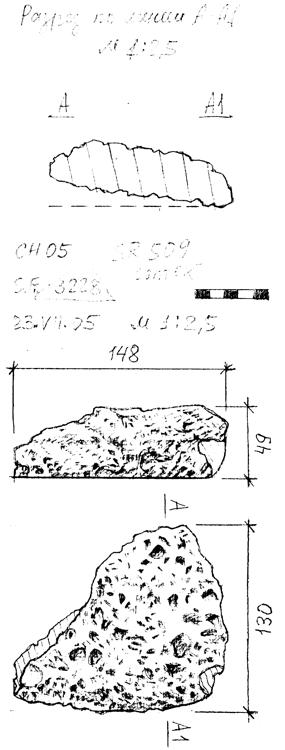 Разрез по линии А-А1
М 1:2,5
А А1
СН 05 SR 509
S.E. 3228
23.VII.05 М 1:2,5
148
49
А
130
А1